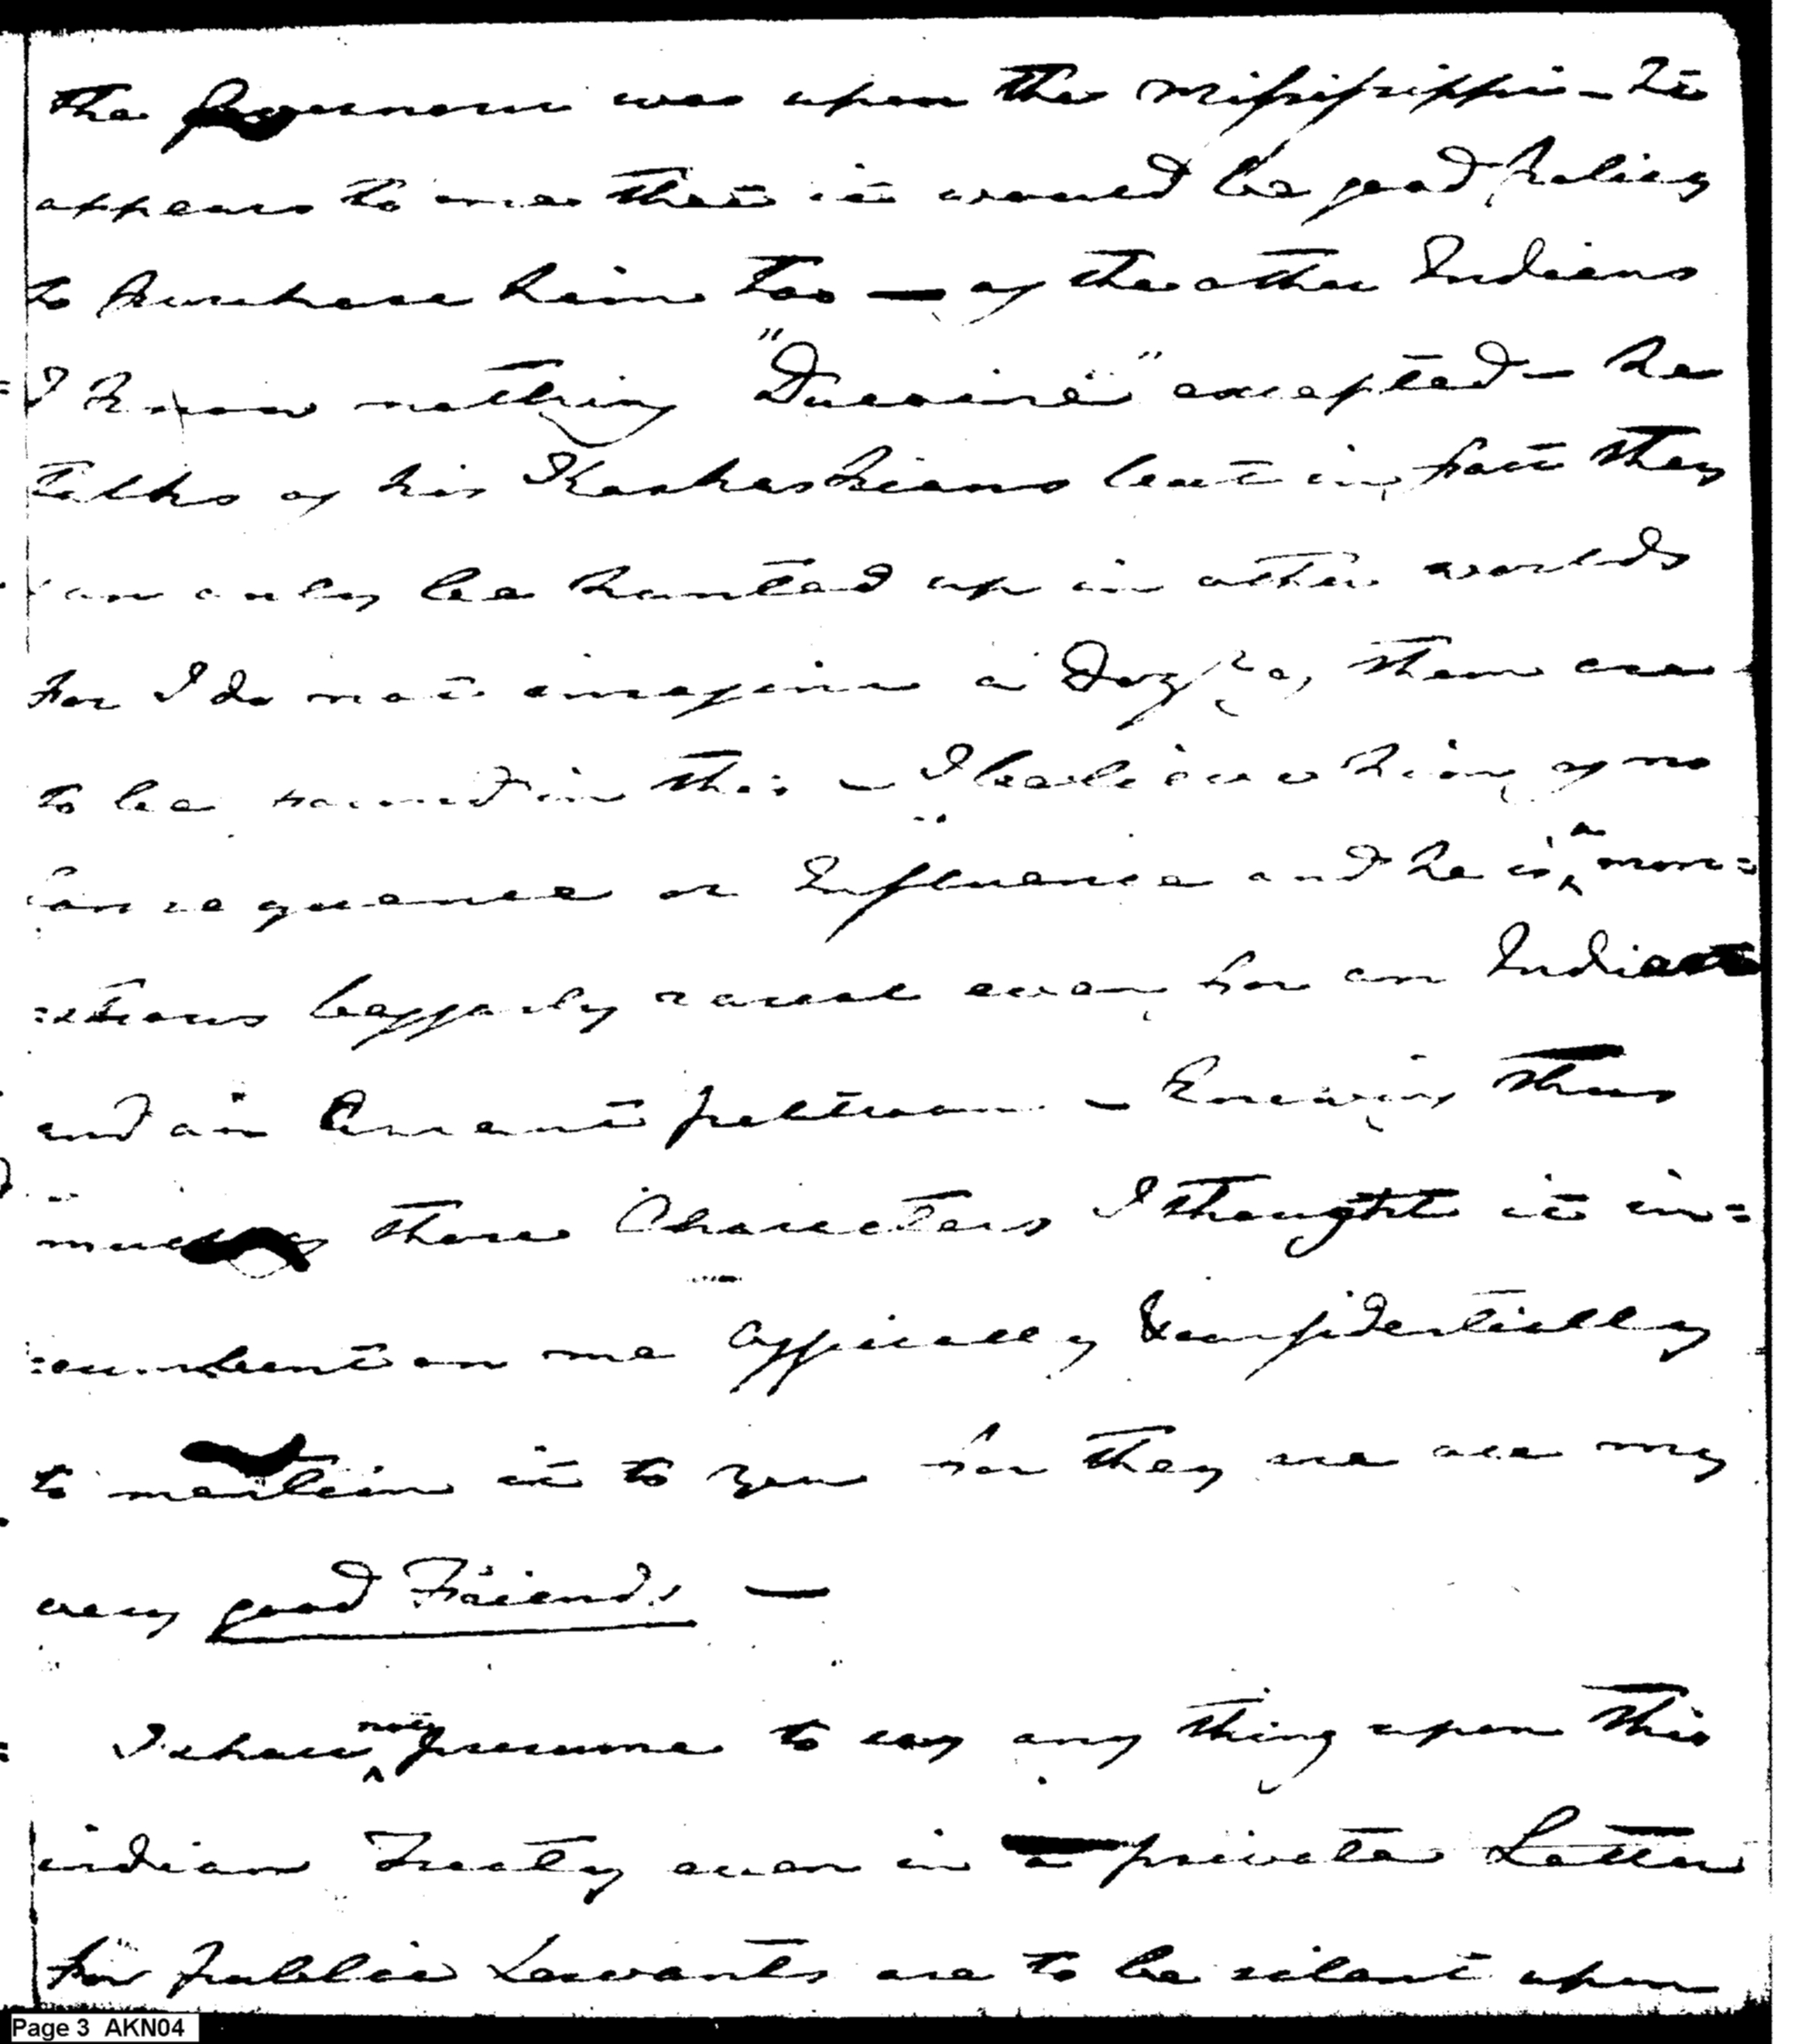 the Governour was upon the Missisippi - It
appears to me that it would be good Policy
to Purchase him too — of the other Indians
I know nothing "Ducoine" excepted - he
talks of his Kaskaskians but in fact they
can only be hunted up in other worlds
for I do not imagine a Dozn. of them are
to be found in this - I believe him of no
Consequence or Influence and he is a mon=
=strous beggarly rascal even for an Indian
and an Arrant poltroon - Knowing thus
much of those Characters I thought it in=
=cumbent on me officially & confidentially
to mention it to you for they are all my
very good Friends —
I shall not presume to say any thing upon this
indian Treaty even in a private Letter
for public Servants are to be silent upon
Page 3 AKN04